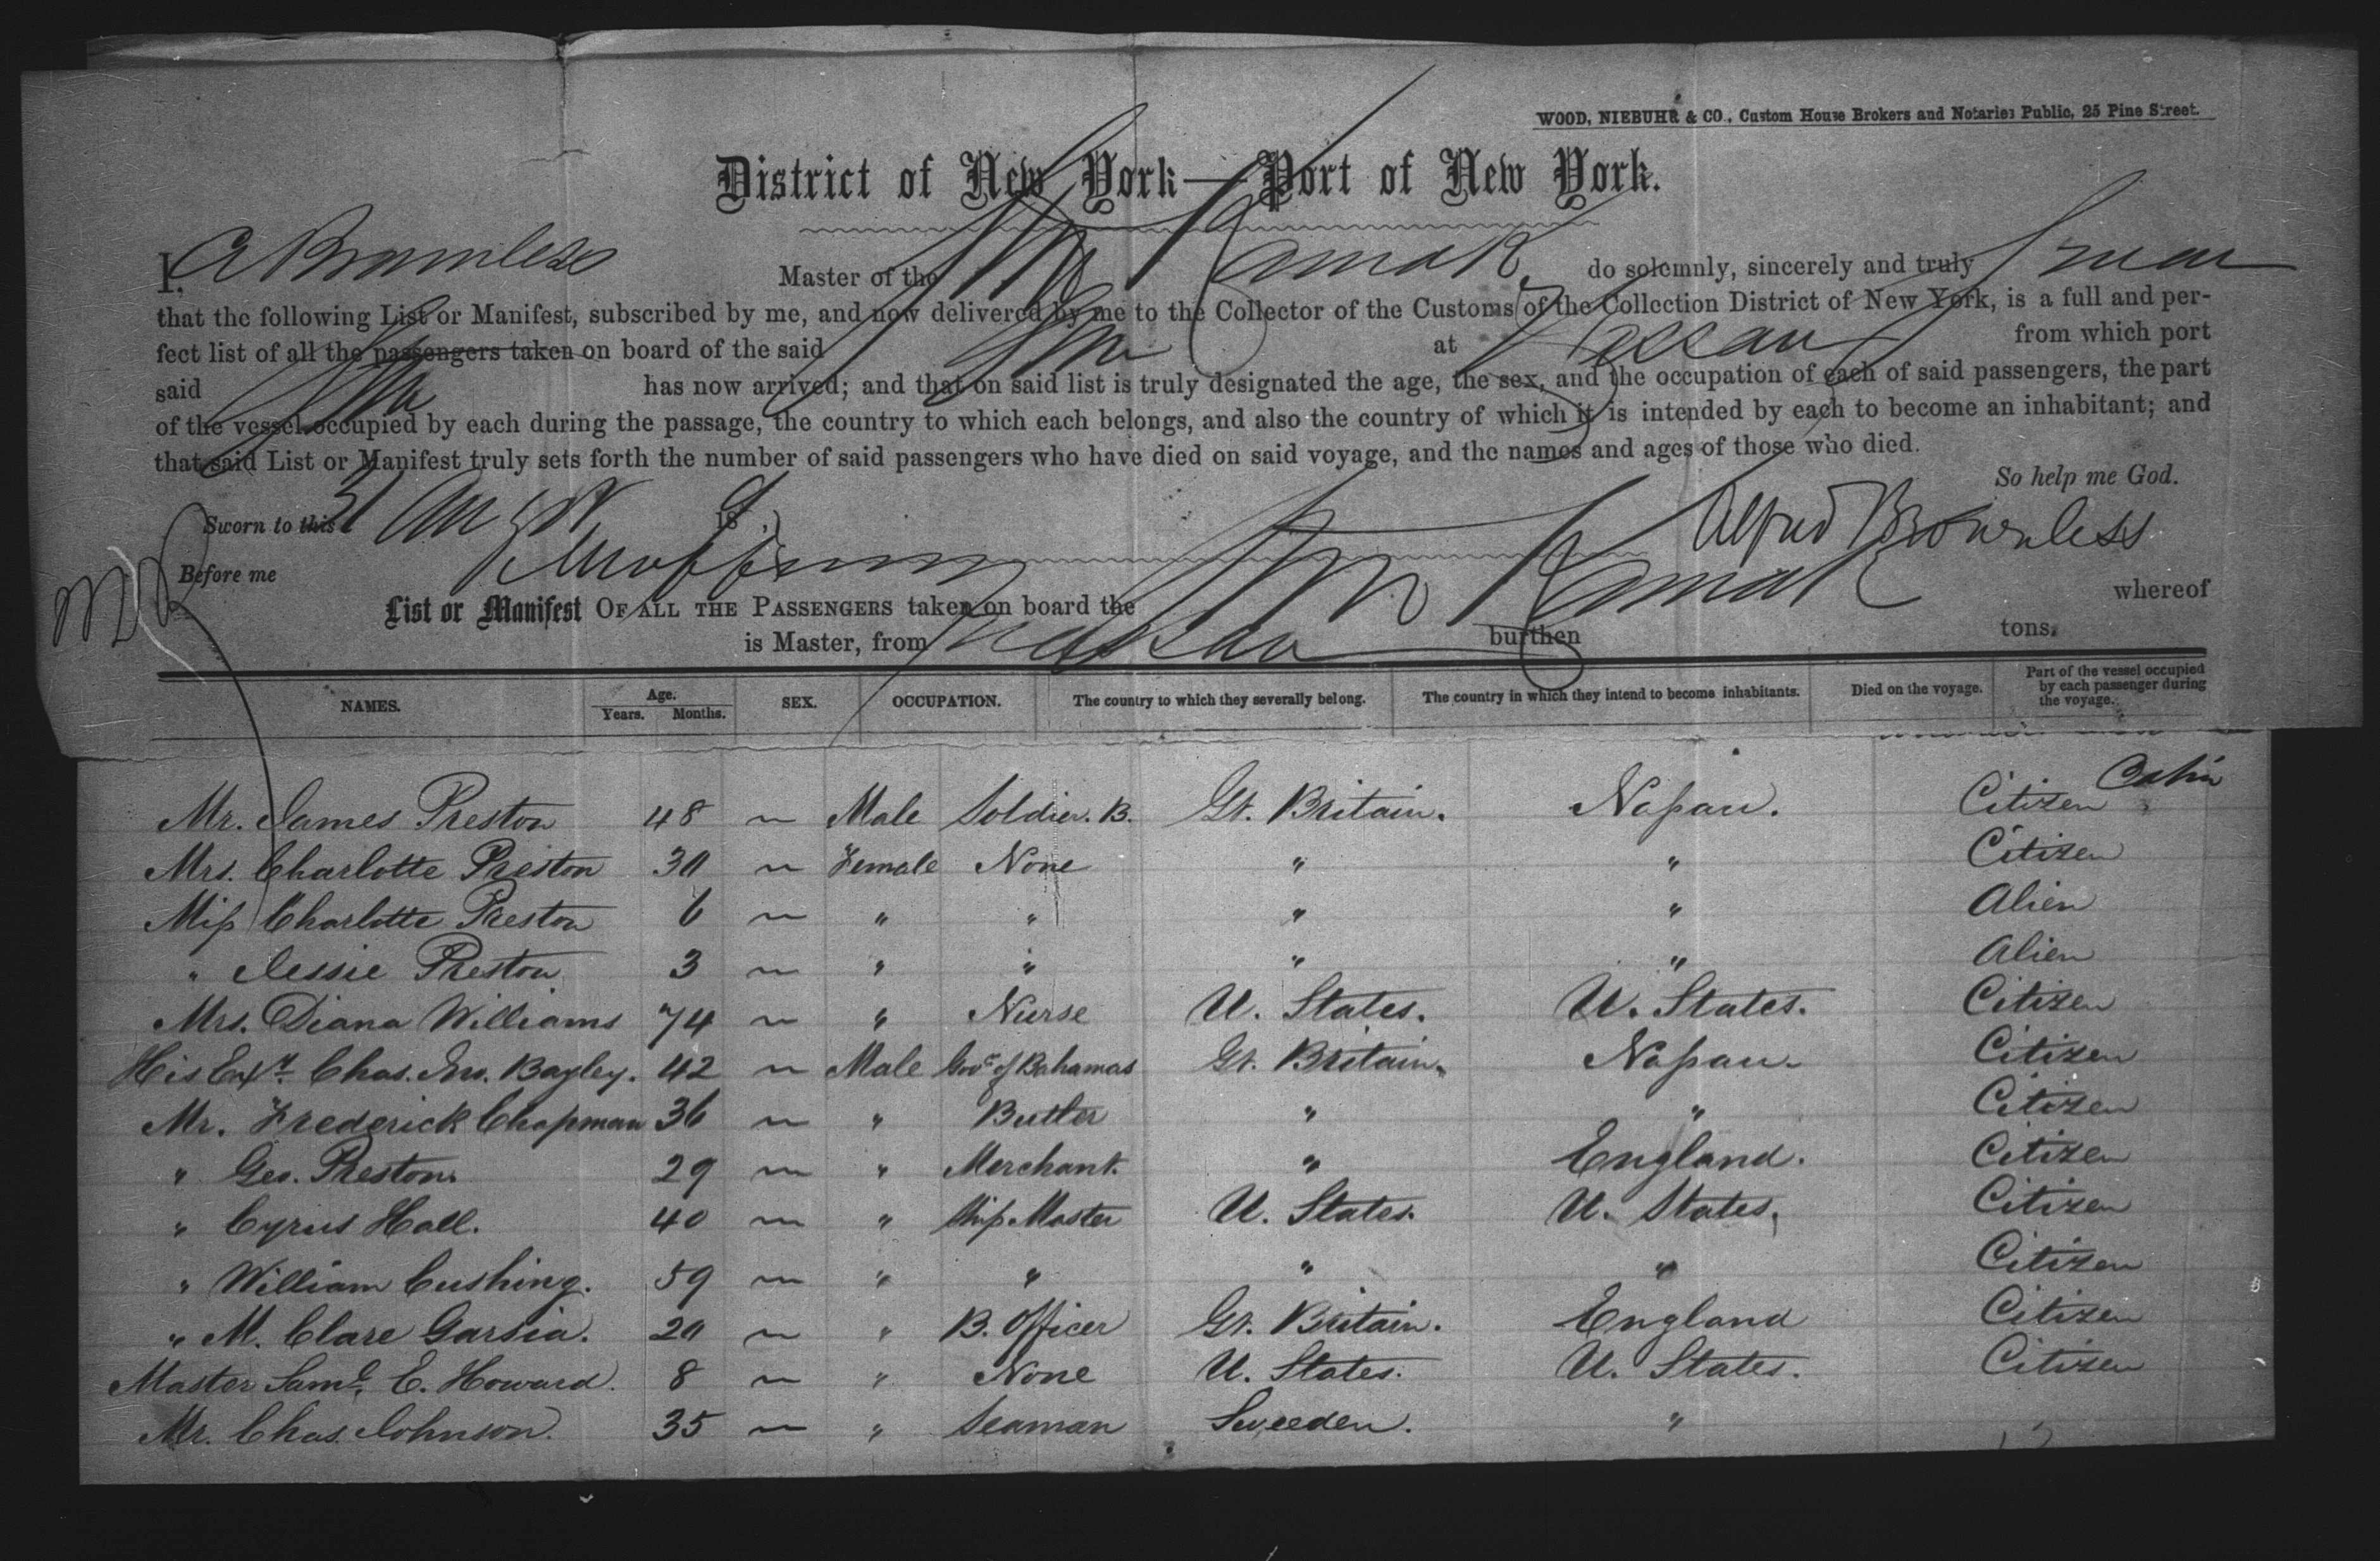 WOOD, NIEBUHR & CO., Custom House Brokers and Notaries Public, 25 Pine Street.
District of New York—Port of New York.
I, A Brownless Master of the Str Karnak do solemnly, sincerely and truly Swear
that the following List or Manifest, subscribed by me, and now delivered by me to the Collector of the Customs of the Collection District of New York, is a full and per-
fect list of all the passengers taken on board of the said Str at Nassau from which port
said Str has now arrived; and that on said list is truly designated the age, the sex, and the occupation of each of said passengers, the part
of the vessel occupied by each during the passage, the country to which each belongs, and also the country of which it is intended by each to become an inhabitant; and
that said List or Manifest truly sets forth the number of said passengers who have died on said voyage, and the names and ages of those who died.
So help me God.
Sworn to this 31 Augst 18
Alfred Brownless
Before me
List or Manifest OF ALL THE PASSENGERS taken on board the Str Karnak whereof
is Master, from Nassau burthen tons.
NAMES. Age. Years. Months. SEX. OCCUPATION. The country to which they severally belong. The country in which they intend to become inhabitants. Died on the voyage. Part of the vessel occupied by each passenger during the voyage.
Mr. James Preston 48 ~ Male Soldier. B. Gt. Britain. Nassau. Citizen Cabin
Mrs. Charlotte Preston 30 ~ Female None " " Citizen
Miss Charlotte Preston 6 ~ " " " " Alien
" Jessie Preston 3 ~ " " " " Alien
Mrs. Diana Williams 74 ~ " Nurse U. States. U. States. Citizen
His Exy. Chas. Jno. Bayley. 42 ~ Male Govr of Bahamas Gt. Britain. Nassau. Citizen
Mr. Frederick Chapman 36 ~ " Butler " " Citizen
" Geo. Preston. 29 ~ " Merchant. " England. Citizen
" Cyrus Hall. 40 ~ " Ship Master U. States. U. States. Citizen
" William Cushing. 59 ~ " " " " Citizen
" M. Clare Garsia. 20 ~ " B. Officer Gt. Britain. England Citizen
Master Saml. E. Howard. 8 ~ " None U. States. U. States. Citizen
Mr. Chas. Johnson. 35 ~ " Seaman Sweeden. "